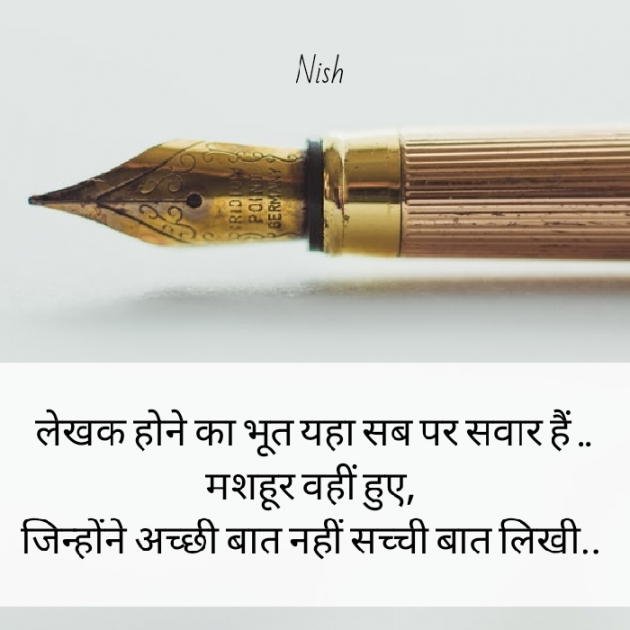 Nish
IRIDIUM
POINT
GERMANY
लेखक होने का भूत यहा सब पर सवार हैं ..
मशहूर वहीं हुए,
जिन्होंने अच्छी बात नहीं सच्ची बात लिखी..